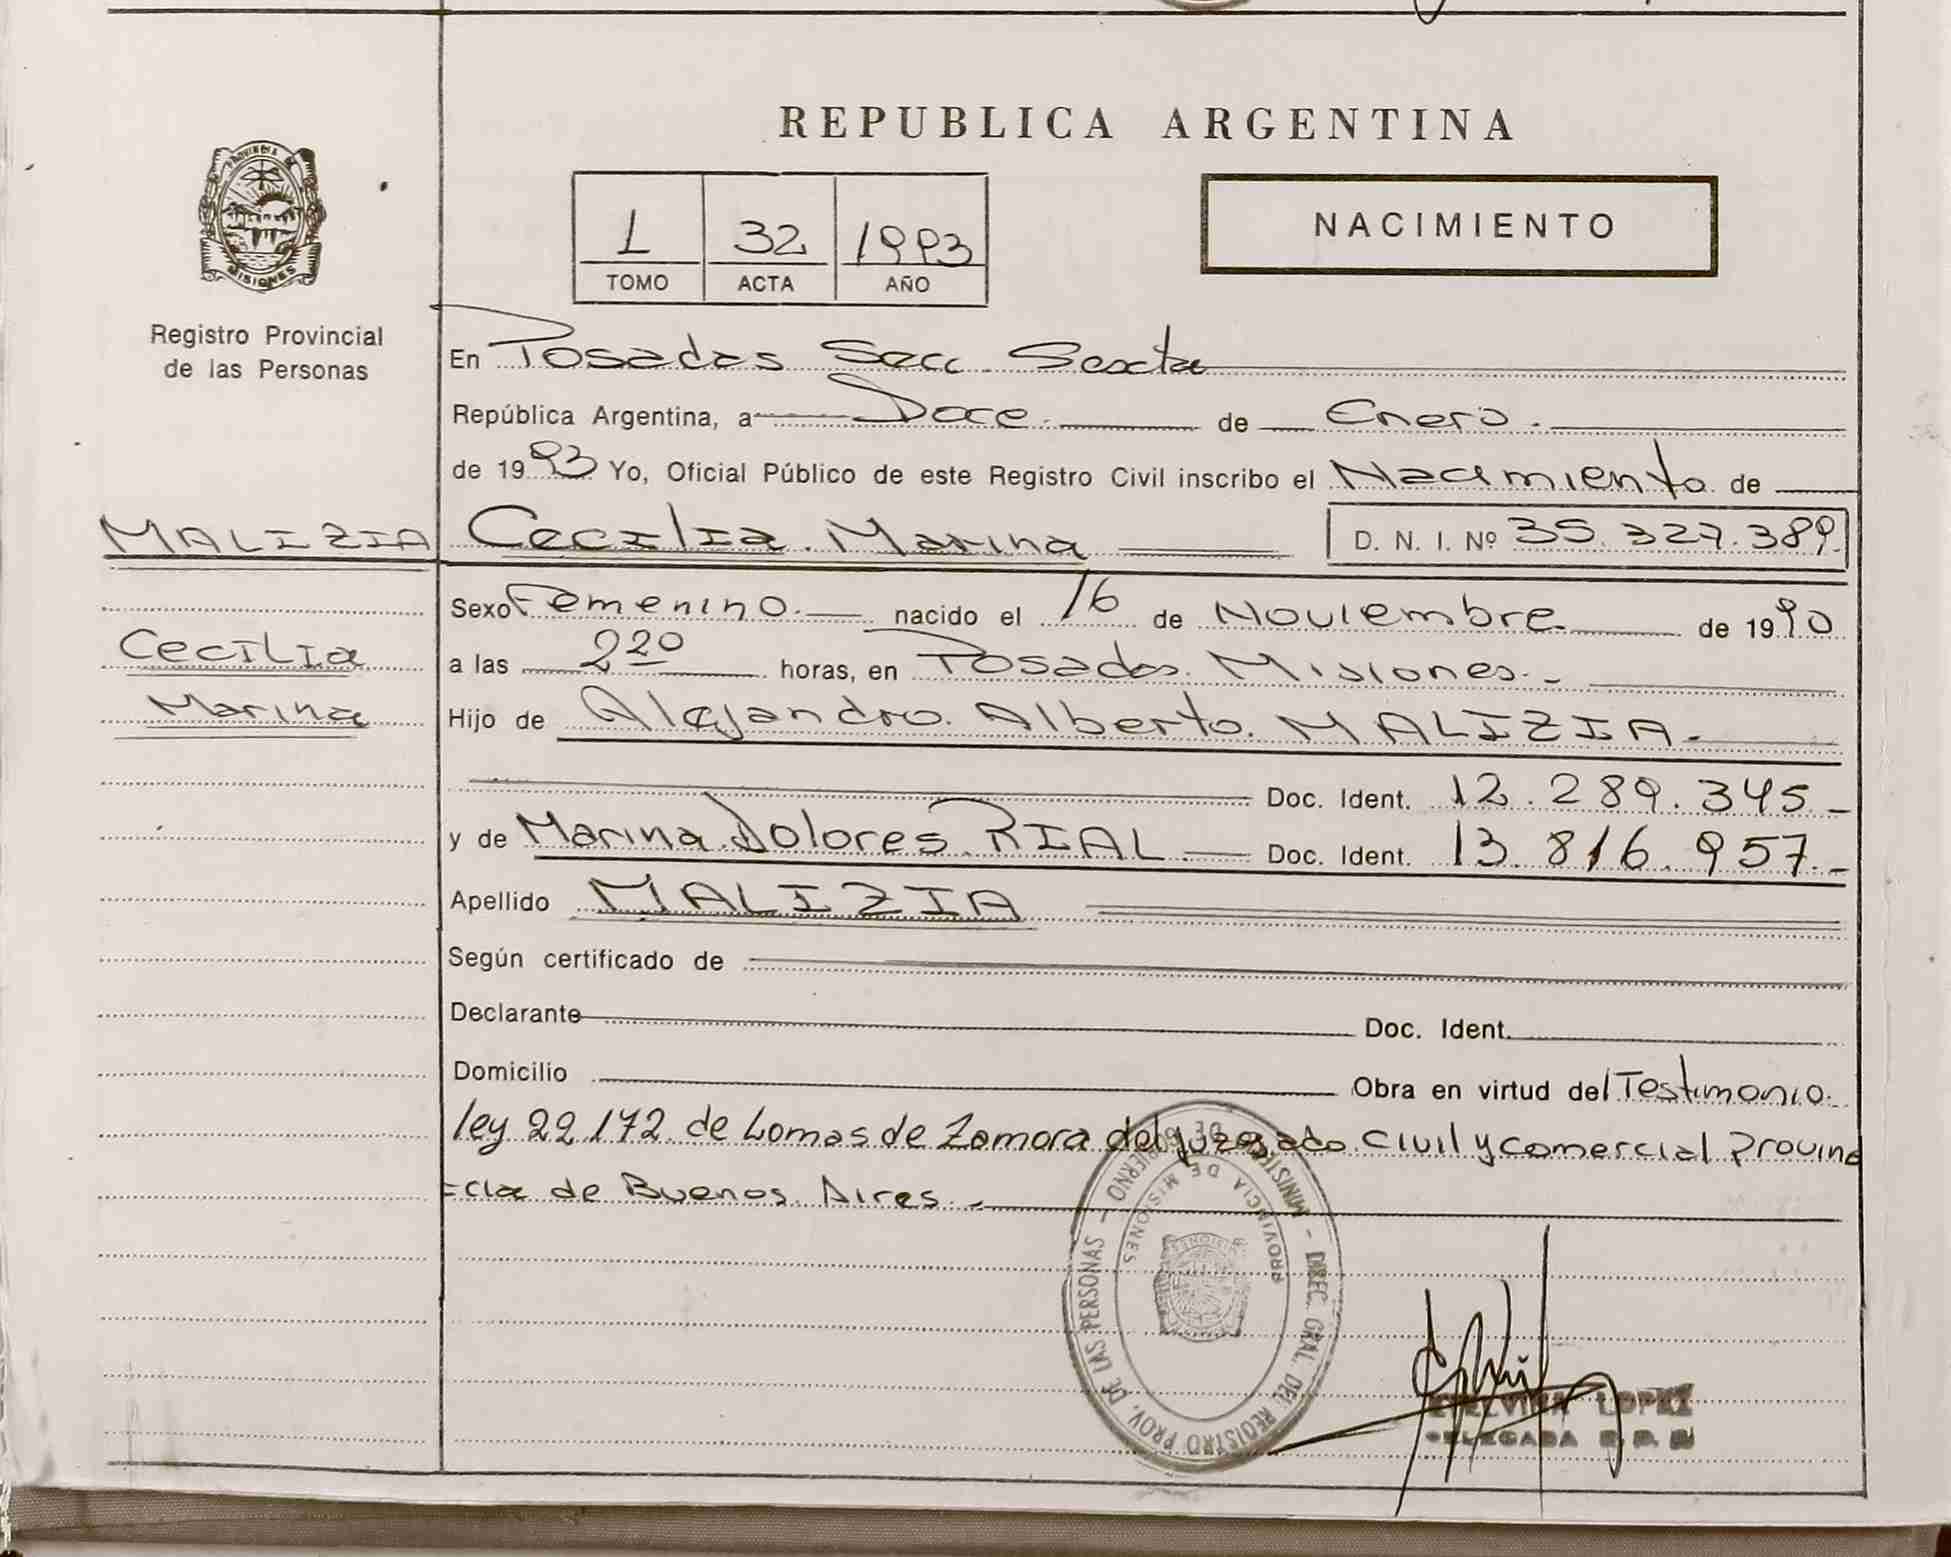 REPUBLICA ARGENTINA
PROVINCIA DE
MISIONES
Registro Provincial
de las Personas
1 32 1993
TOMO ACTA AÑO
NACIMIENTO
En Posadas Secc. Sexta
República Argentina, a Doce de Enero.
de 1993 Yo, Oficial Público de este Registro Civil inscribo el Nacimiento de
MALIZIA Cecilia Marina D. N. I. Nº 35.327.389.
Sexo Femenino. nacido el 16 de Noviembre de 1990
Cecilia
Marina
a las 220 horas, en Posadas. Misiones.-
Hijo de Alejandro. Alberto. MALIZIA.-
Doc. Ident. 12.289.345.-
y de Marina Dolores RIAL.- Doc. Ident. 13.816.957.-
Apellido MALIZIA
Según certificado de
Declarante Doc. Ident.
Domicilio Obra en virtud del Testimonio.
ley 22.172 de Lomas de Zamora del juzgado Civil y Comercial Provin
=cia de Buenos Aires.-
MINISTERIO DE GOBIERNO - DIREC. GRAL. DEL REGISTRO PROV. DE LAS PERSONAS -
PROVINCIA DE MISIONES
LOPEZ
DELEGADA R. P. P.